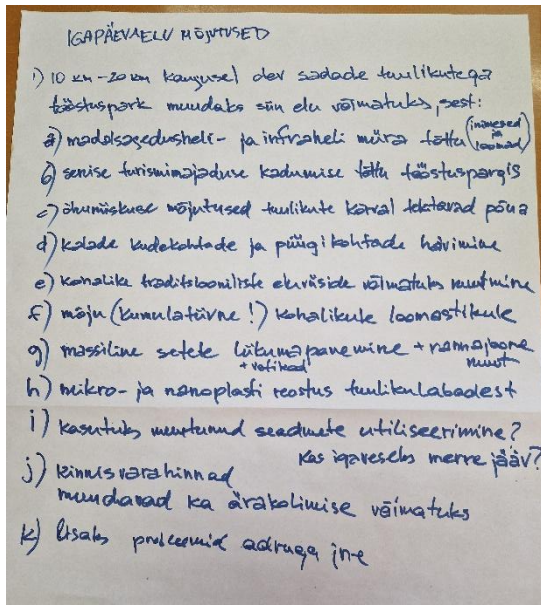 IGAPÄEVAELU MÕJUTUSED
1) 10 km-20 km kaugusel olev sadade tuulikutega
tööstuspark muudaks siin elu võimatuks, sest:
a) madalsagedusheli- ja infraheli müra tõttu (inimesed ja loomad)
b) senise turismimajanduse kadumise tõttu tööstuspargis
c) õhuniiskuse mõjutused tuulikute kõrval tekitavad põua
d) kalade kudekohtade ja püügikohtade hävimine
e) kohalike traditsiooniliste eluviiside võimatuks muutmine
f) mõju (kumulatiivne!) kohalikule loomastikule
g) massiline setete liikumapanemine + rannajoone muut
+ vetikad
h) mikro- ja nanoplasti reostus tuulikulabadest
i) kasutuks muutunud seadmete utiliseerimine?
Kas igaveseks merre jääv?
j) kinnisvarahinnad
muudavad ka ärakolimise võimatuks
k) lisaks probleemid adruga jne